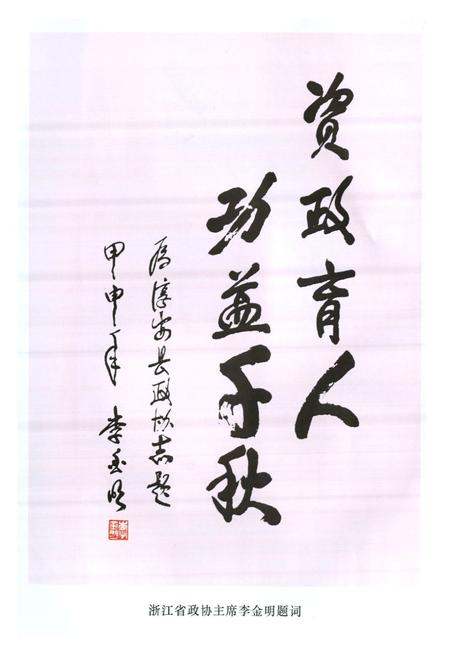 资政育人
功益千秋
为淳安县政协志题
甲申年 李金明
浙江省政协主席李金明题词